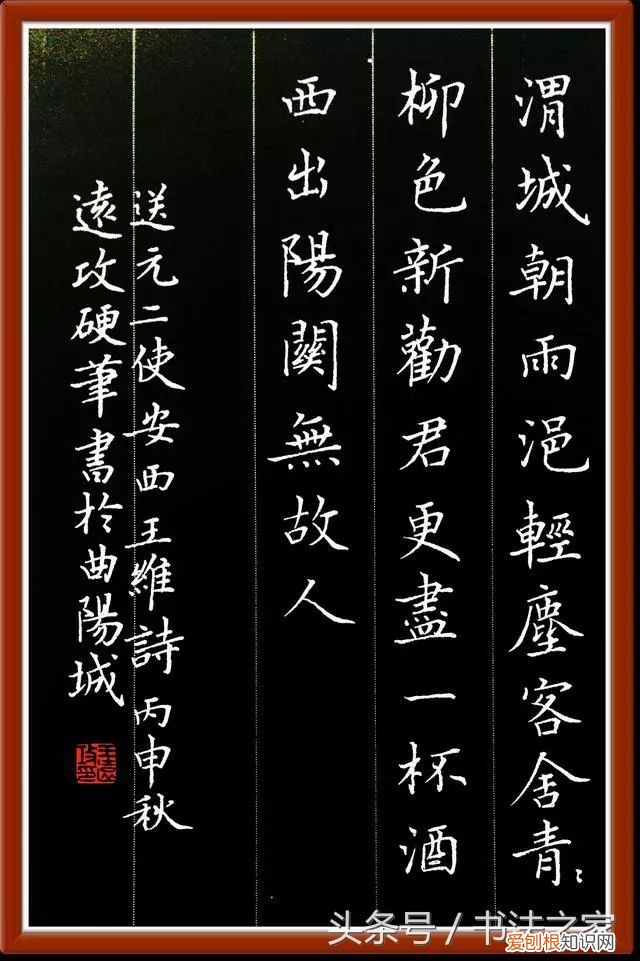 渭城朝雨浥輕塵客舍青〻
柳色新勸君更盡一杯酒
西出陽關無故人
送元二使安西王維詩丙申秋
遠攻硬筆書於曲陽城
头条号 / 书法之家
爱刨根知识网